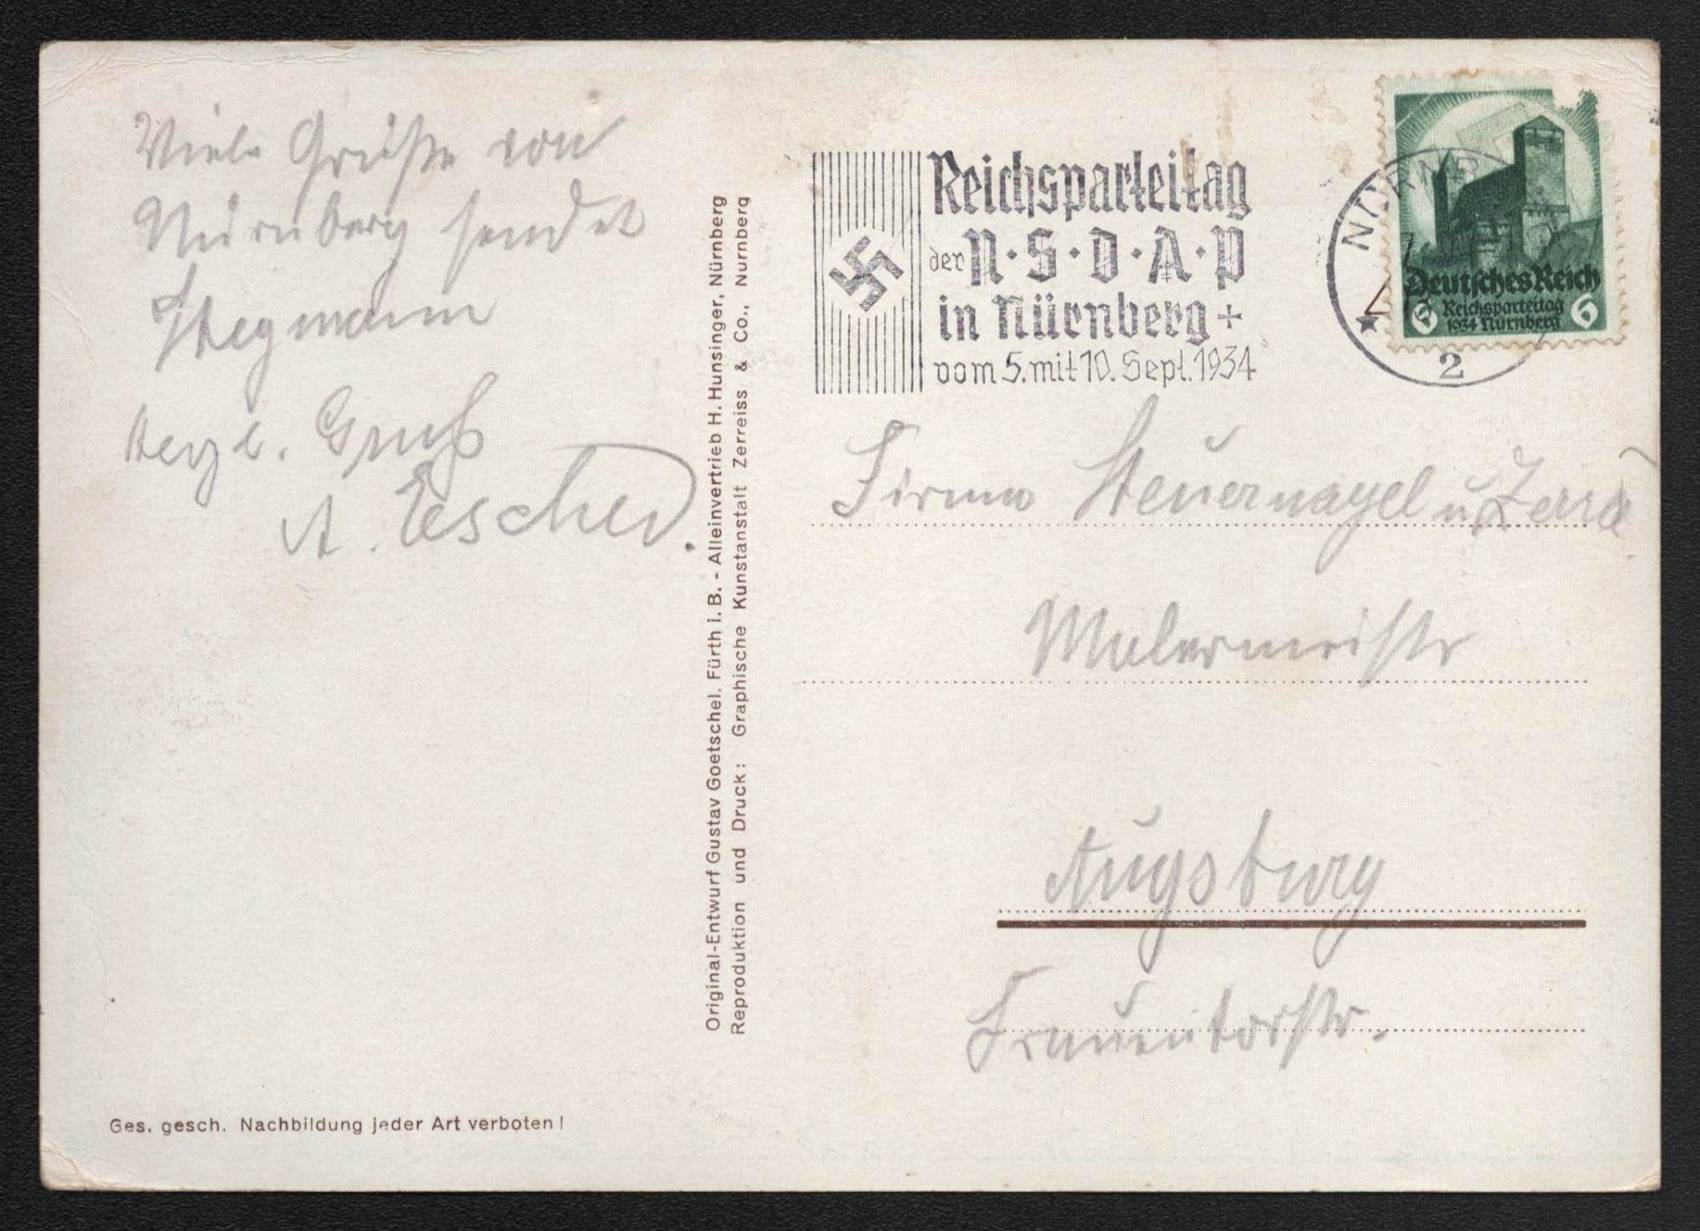 Viele Grüße von
Nürnberg sendet
Stegmann
Herzl. Gruß
A. Escher.
Original-Entwurf Gustav Goetschel, Fürth i. B. - Alleinvertrieb H. Hunsinger, Nürnberg
Reproduktion und Druck: Graphische Kunstanstalt Zerreiss & Co., Nurnberg
Ges. gesch. Nachbildung jeder Art verboten!
Reichsparteitag
der N·S·D·A·P
in Nürnberg +
vom 5. mit 10. Sept. 1934
2
Deutsches Reich
6 Reichsparteitag 6
1934 Nürnberg
Firma Steuernagel u.
Malermeistr
Augsburg
Frauentorstr.